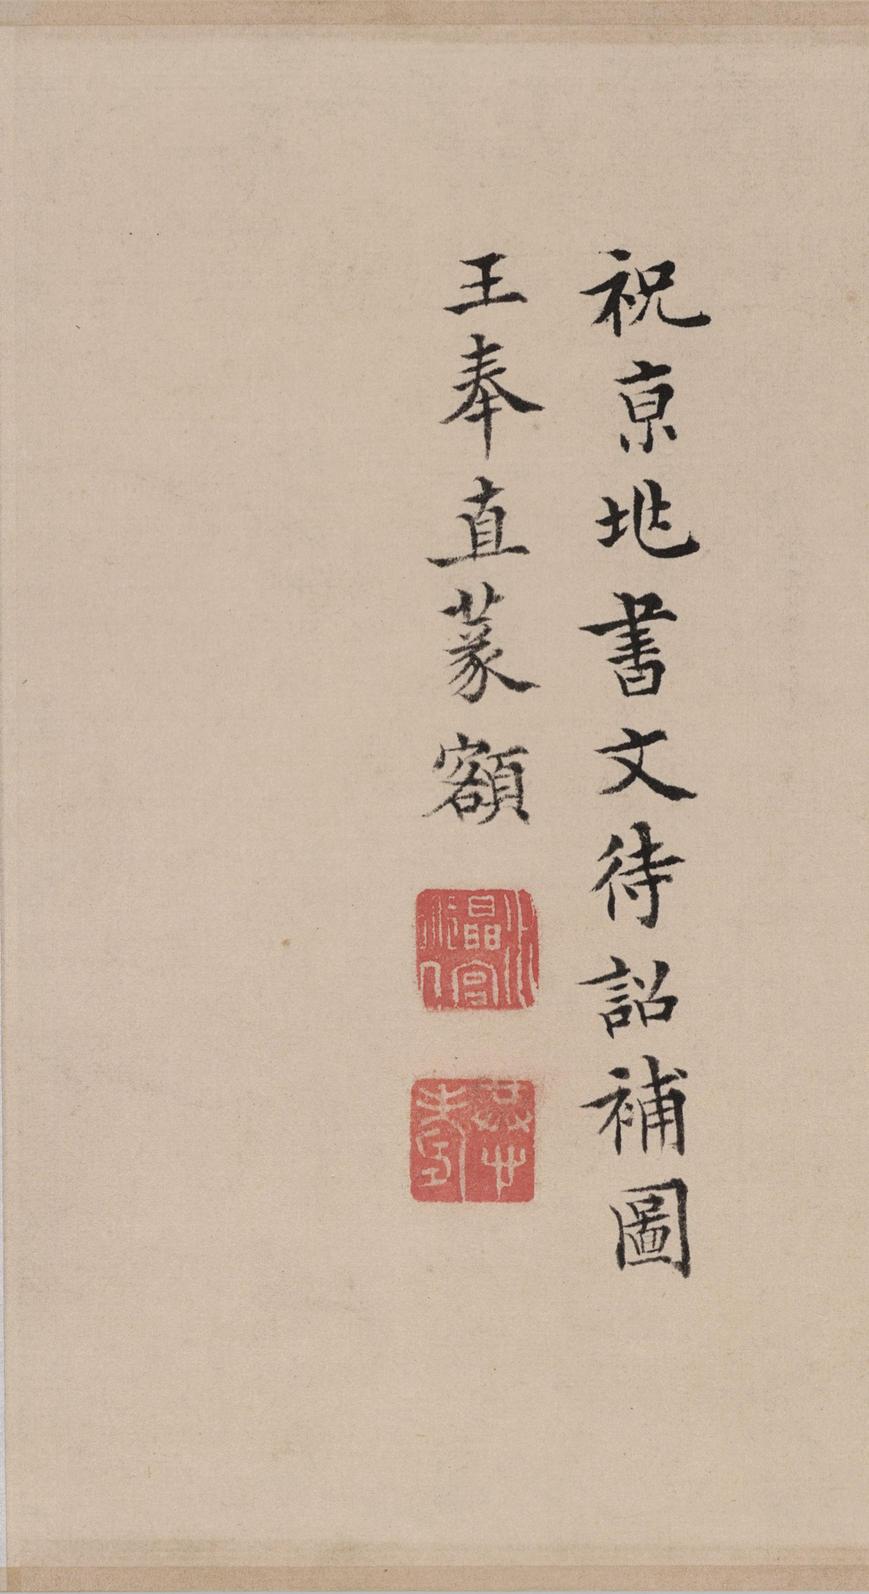 祝亰兆書文待詔補圖
王奉直篆額